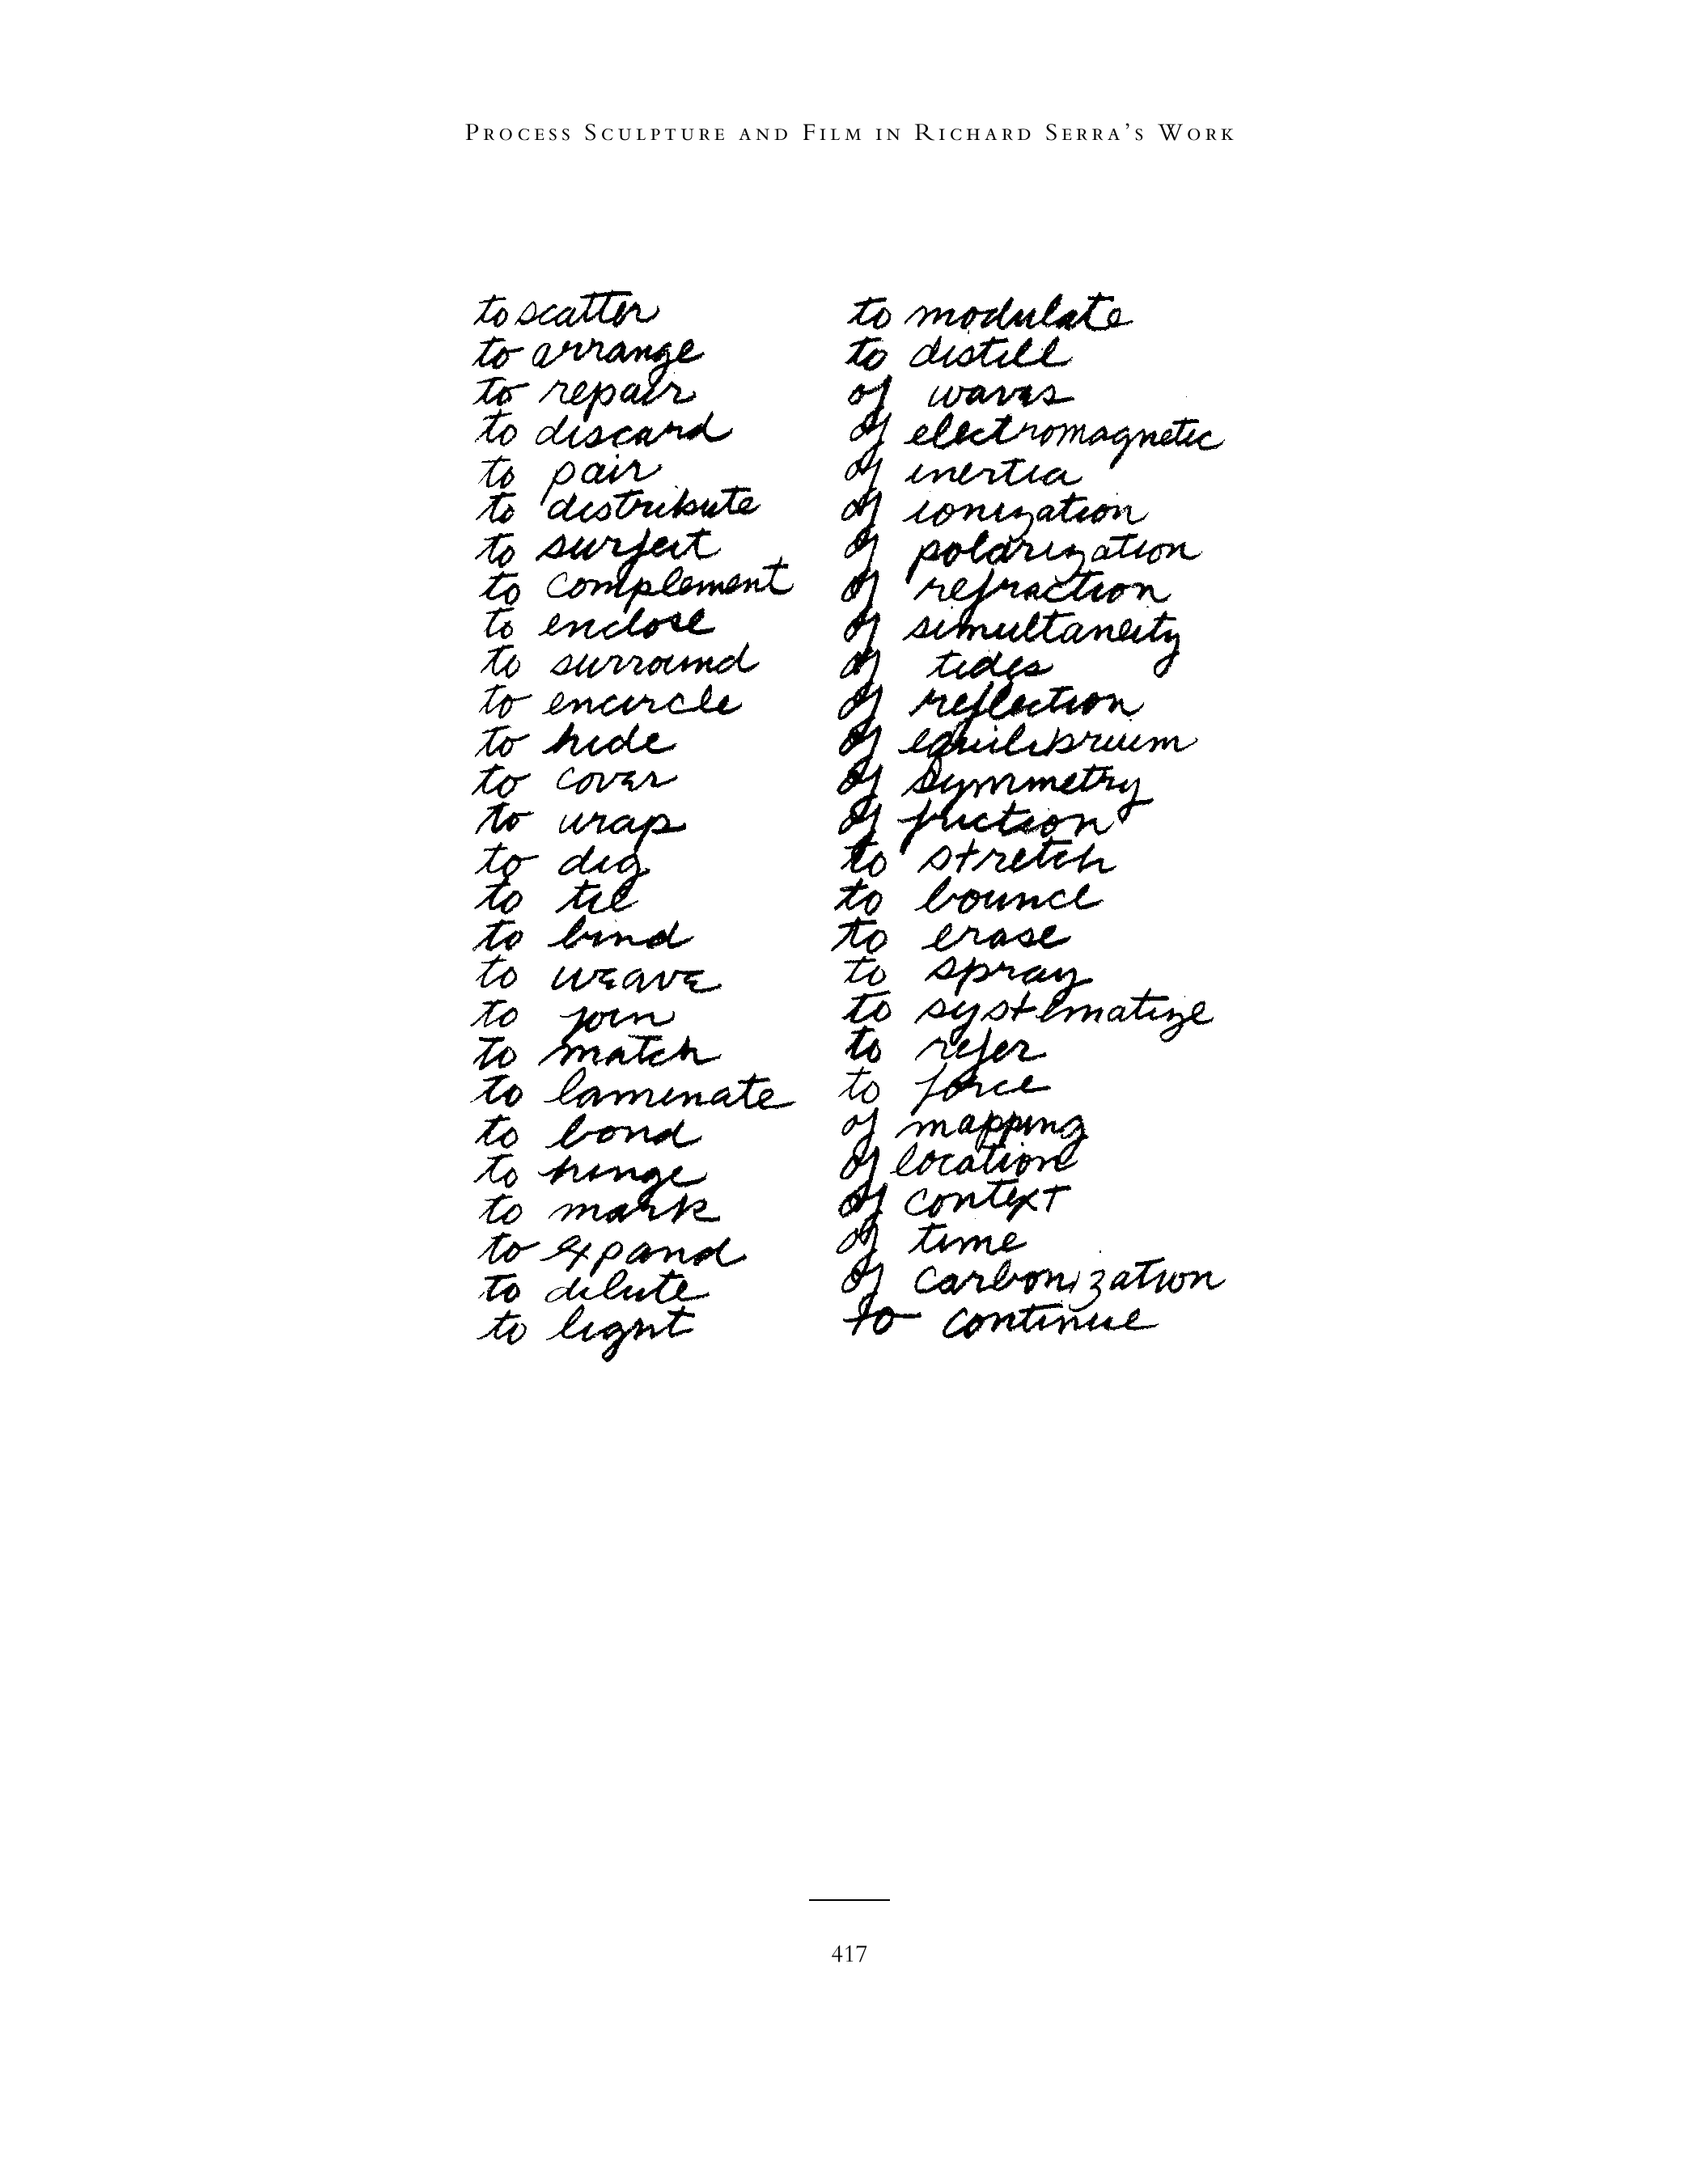 PROCESS SCULPTURE AND FILM IN RICHARD SERRA'S WORK
to scatter
to arrange
to repair
to discard
to pair
to distribute
to surfeit
to complement
to enclose
to surround
to encircle
to hide
to cover
to wrap
to dig
to tie
to bind
to weave
to join
to match
to laminate
to bond
to hinge
to mark
to expand
to dilute
to light
to modulate
to distill
of waves
of electromagnetic
of inertia
of ionization
of polarization
of refraction
of simultaneity
of tides
of reflection
of equilibrium
of symmetry
of friction
to stretch
to bounce
to erase
to spray
to systematize
to refer
to force
of mapping
of location
of context
of time
of carbonization
to continue
417